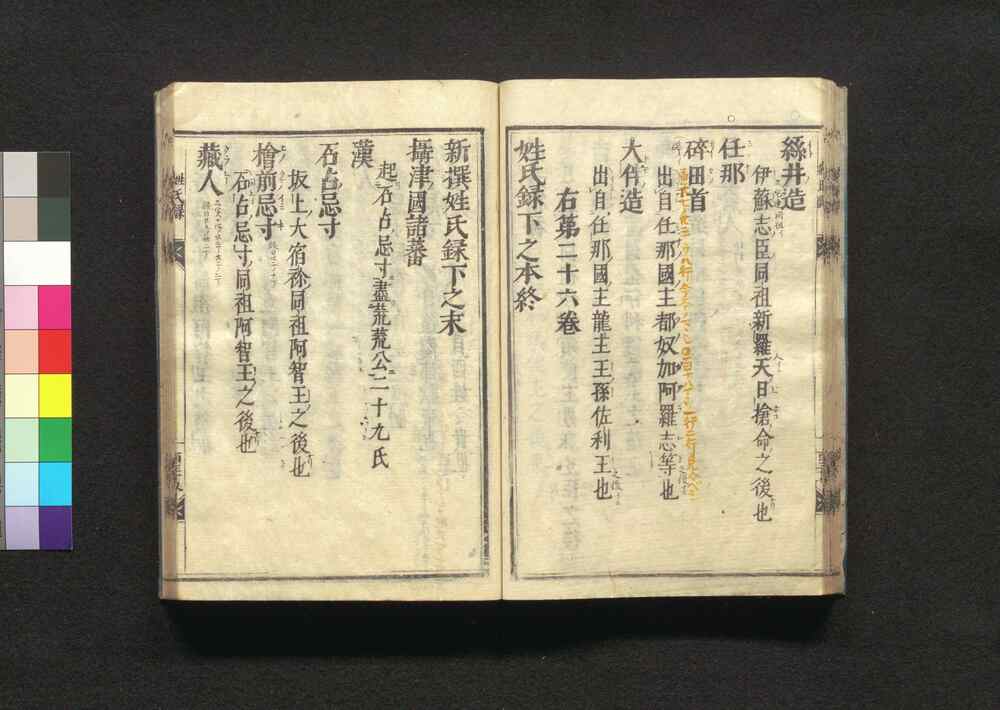 絲井造
伊蘇志臣同祖新羅天日槍命之後也
任那
出自任那國主都奴加阿羅志等也
大伴造
出自任那國主龍主王孫佐利王也
右第二十六卷
姓氏録下之本終
新撰姓氏録下之末
攝津國諸蕃
起石占忌寸盡荒荒公二十九氏
漢
石占忌寸
坂上大宿祢同祖阿智王之後也
檜前忌寸
石占忌寸同祖阿智王之後也
藏人
姓氏録